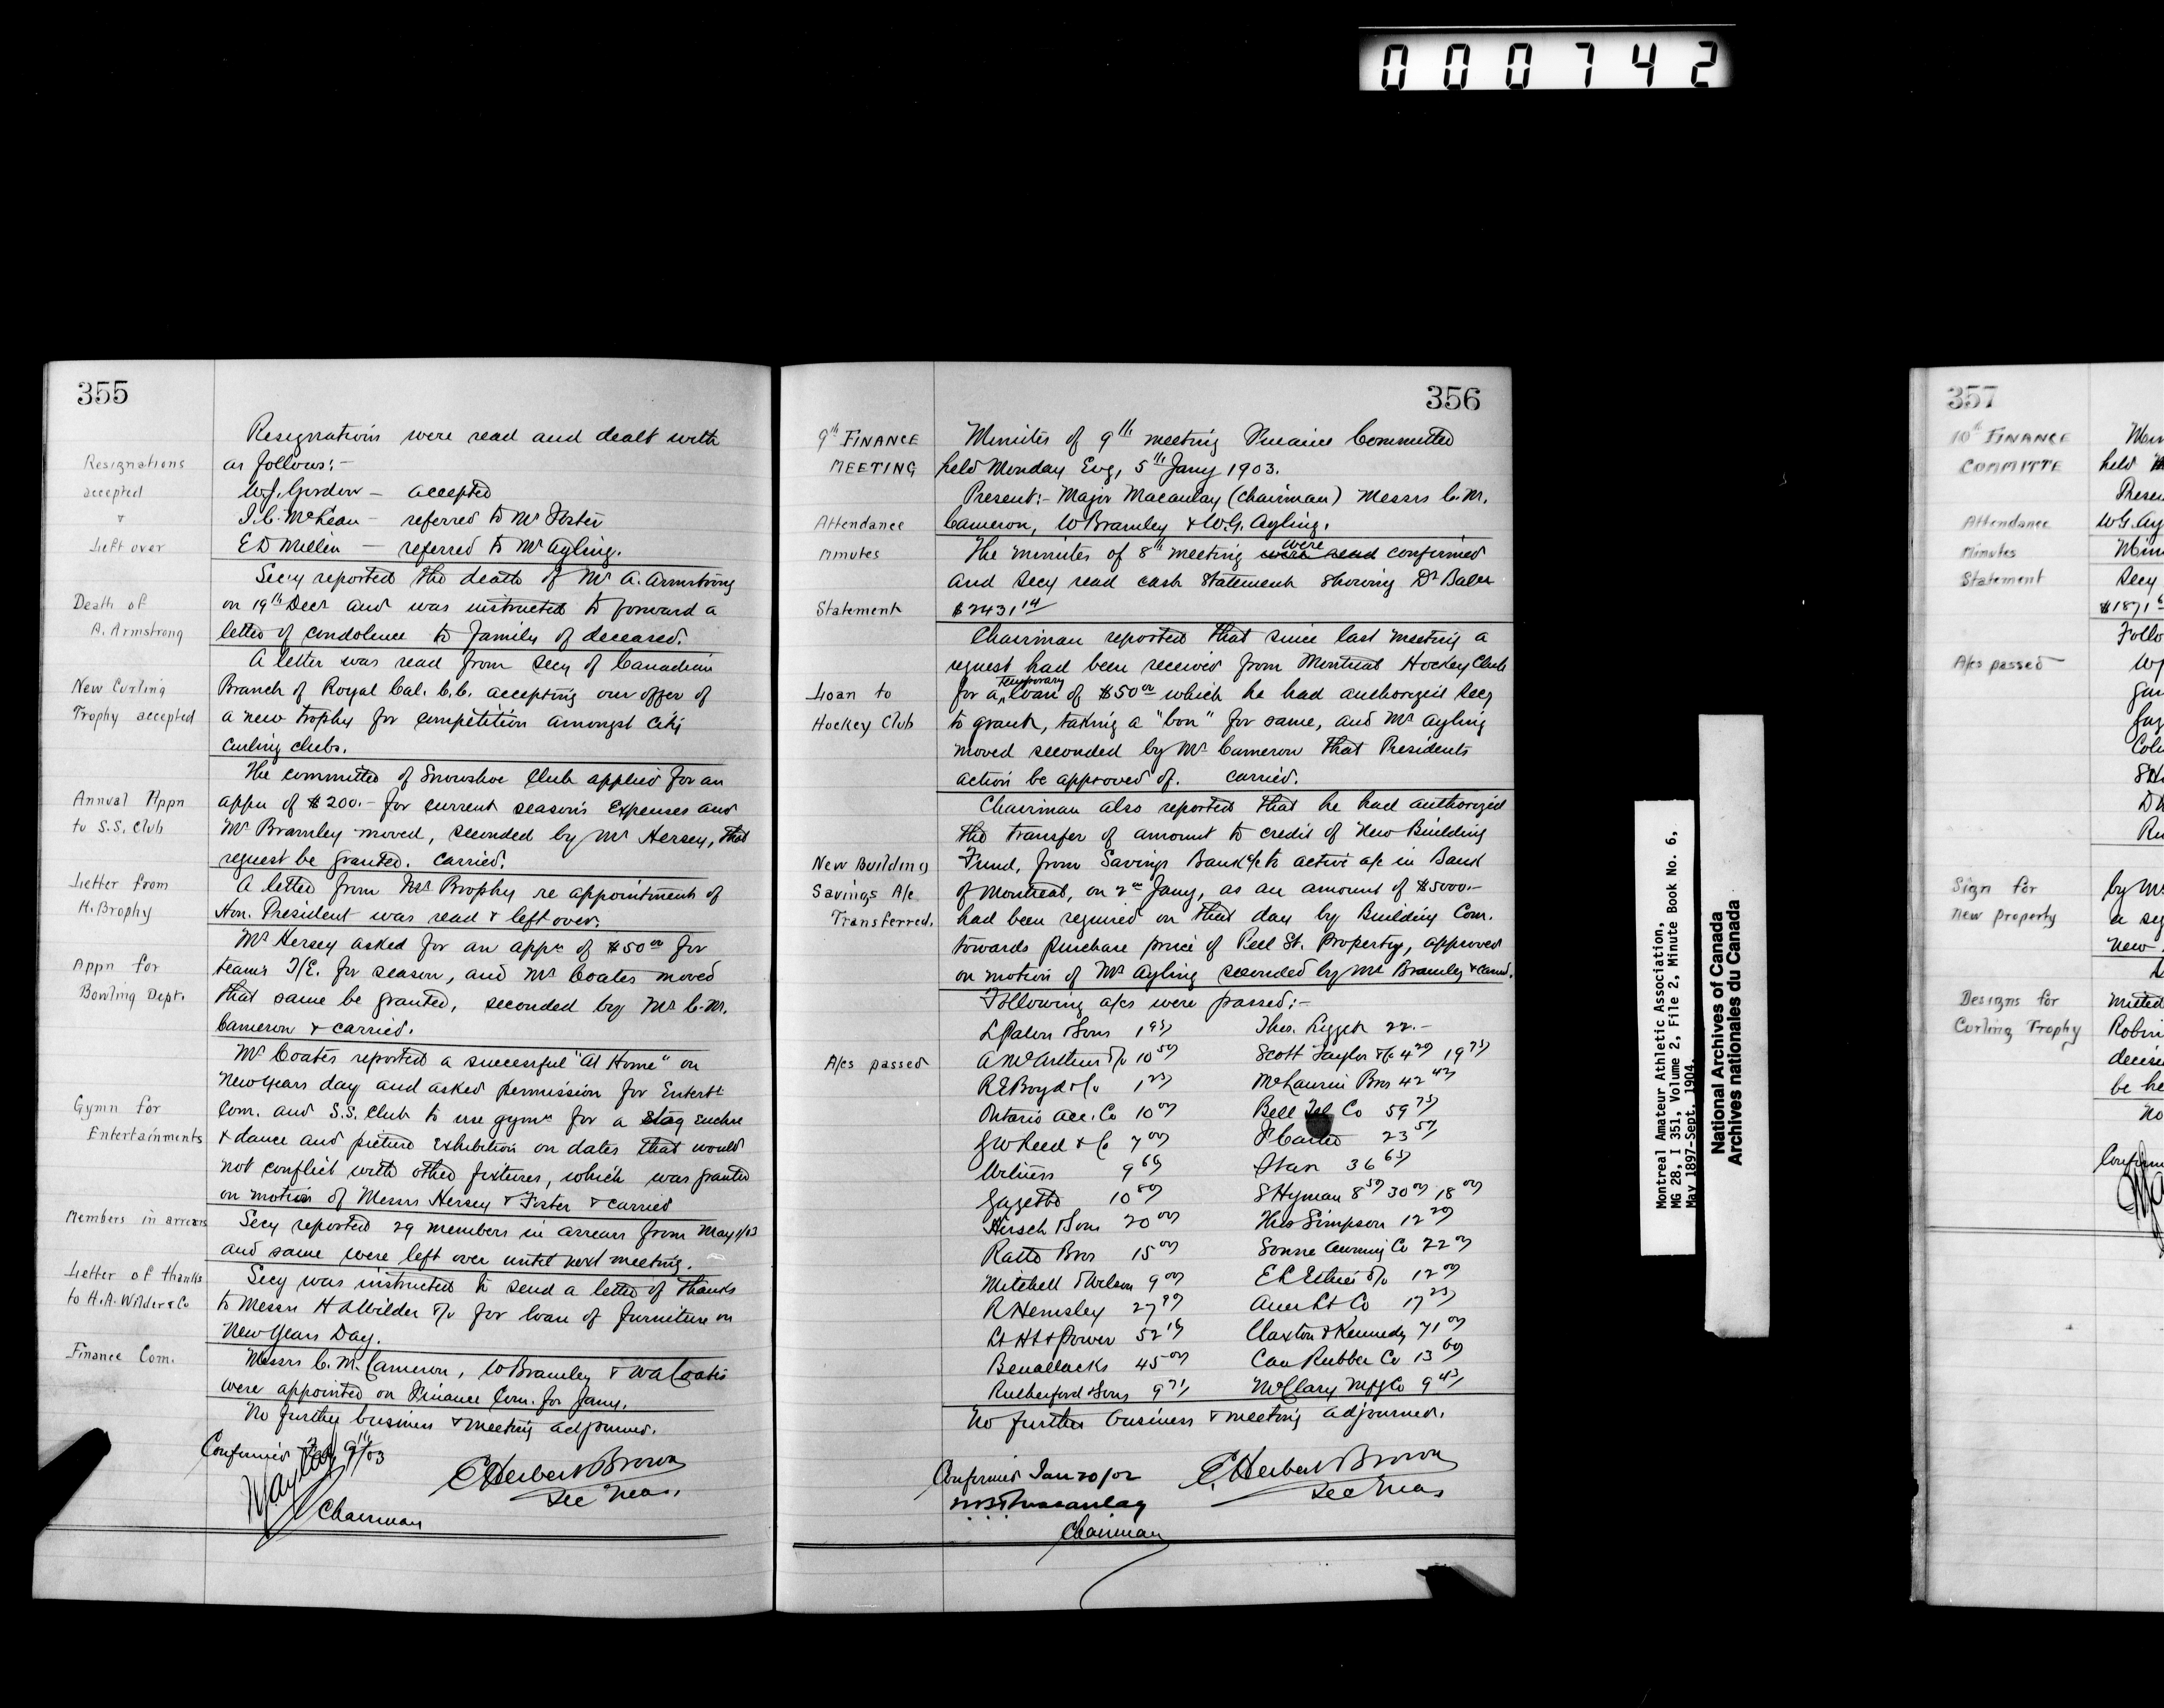 000742
355
Resignations were read and dealt with
Resignations as follows:-
accepted W.J. Gordon - accepted
& I.C. McLean - referred to Mr Foster
Left over E D Millen - referred to Mr Ayling.
Secy reported the death of Mr A. Armstrong
Death of on 19th Decr and was instructed to forward a
A. Armstrong letter of condolence to family of deceased.
A letter was read from Secy of Canadian
New Curling Branch of Royal Cal. C.C. accepting our offer of
Trophy accepted a new trophy for competition amongst City
Curling clubs.
The committee of Snowshoe Club applied for an
Annual Appn appn of $200.- for current season's Expenses and
to S.S. Club Mr Bramley moved, seconded by Mr Hersey, that
request be granted. Carried.
Letter from A letter from Mr Brophy re appointment of
H. Brophy Hon. President was read & left over.
Mr Hersey asked for an appn of $50 00 for
Appn for team's T/E. for season, and Mr Coates moved
Bowling Dept. that same be granted, seconded by Mr C.M.
Cameron & carried.
Mr Coates reported a successful "At Home" on
New Years day and asked permission for Entertt
Gymn for Com. and S.S. Club to use gymn for a stag euchre
Entertainments & dance and picture Exhibition on dates that would
not conflict with other fixtures, which was granted
on motion of Messrs Hersey & Foster & carried
Members in arrears Secy reported 29 members in arrears from May 1/03
and same were left over until next meeting.
Letter of thanks Secy was instructed to send a letter of thanks
to H.A. Wilder & Co to Messrs H A Wilder & Co for loan of furniture on
New Years Day.
Finance Com. Messrs C.M. Cameron, W Bramley & W A Coates
were appointed on Finance Com. for Jany.
No further business & meeting adjourned.
Confirmed Feb 9th/03
C Herbert Brown
Sec Treas.
Chairman
356
9th FINANCE Minutes of 9th meeting Finance Committee
MEETING held Monday Evg, 5th Jany 1903.
Present:- Major Macaulay (Chairman) Messrs C.M.
Attendance Cameron, W Bramley & W.G. Ayling.
Minutes The minutes of 8th meeting were read were confirmed
and Secy read cash statement showing Dr Balce
Statement $2431 14/
Chairman reported that since last meeting a
request had been received from Montreal Hockey Club
Loan to for a temporary loan of $50 00 which he had authorized Secy
Hockey Club to grant, taking a "bon" for same, and Mr Ayling
moved seconded by Mr Cameron that Presidents
action be approved of. Carried.
Chairman also reported that he had authorized
the transfer of amount to credit of New Building
New Building Fund, from Savings Bank a/c to active a/c in Bank
Savings A/c of Montreal, on 2nd Jany, as an amount of $5000.-
Transferred. had been required on that day by Building Com.
towards purchase price of Peel St. Property, approved
on motion of Mr Ayling seconded by Mr Bramley & carrd.
Following a/cs were passed:-
& Sons Thos. Liggett 22.-
A/cs passed A McArthur & Co 10 50 Scott Taylor & Co 4 20 19 75
R E Boyd & Co 1 25 McLaurin Bros 42 42
Ontario Acc. Co 10 00 Bell Tel Co 59 75
G W Reed & Co 7 00 23 57
Witness 9 66 Star 36 65
Gazette 10 80 S Hyman 8 50 30 00 18 00
Hirsch & Sons 20 00 Simpson 12 20
Ratto Bros 15 00 Sonne Awning Co 22 00
Mitchell & Wilson 9 00 12 00
R Hemsley 27 Auer Lt Co 17 25
Lt Ht & Power 52 Claxton & Kennedy 71 00
Benallacks 45 00 Can Rubber Co 13 60
Rutherford & Sons 9 71 McClary Mfg Co 9 45
No further business & meeting adjourned.
Confirmed Jan 20/02
C. Herbert Brown
Sec Treas
Macaulay
Chairman
Montreal Amateur Athletic Association,
MG 28, I 351, Volume 2, File 2, Minute Book No. 6,
May 1897-Sept. 1904.
National Archives of Canada
Archives nationales du Canada
357
10th FINANCE
COMMITTE held
Attendance
Minutes
Statement Secy
A/cs passed
Sign for by
New property
new
Designs for
Curling Trophy
be